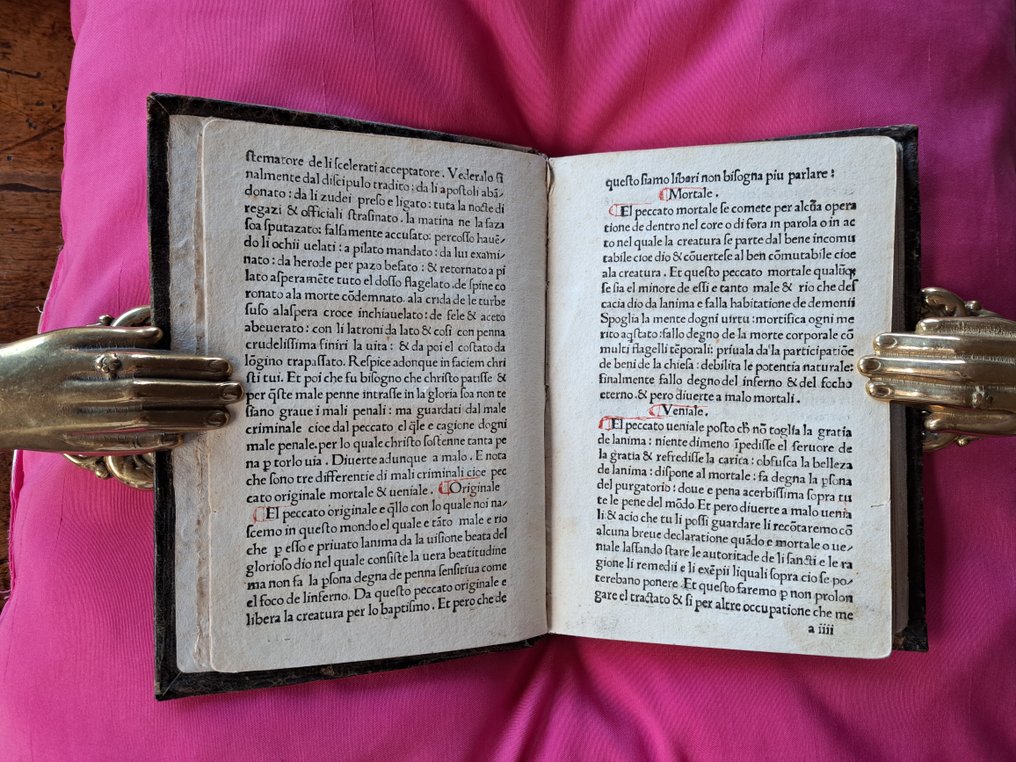 ſtematore de li ſcelerati acceptatore. Vederalo fi
nalmente dal diſcipulo tradito: da li apoſtoli abā⸗
donato: da li zudei preſo e ligato: tuta la nocte di
regazi & officiali ſtraſinato. la matina ne la faza
ſoa ſputazato: falſamente accuſato: percoſſo hauē⸗
do li ochii uelati: a pilato mandato: da lui exami⸗
nato: da herode per pazo befato: & retornato a pi
lato aſperamēte tuto el doſſo flagelato. de ſpine co
ronato ala morte cōdemnato. ala crida de le turbe
ſuſo alaſpera croce inchiauelato: de fele & aceto
abeuerato: con li latroni da lato & coſi con penna
crudeliſſima finiri la uita: & da poi el coſtato da
lōgino trapaſſato. Reſpice adonque in faciem chri
ſti tui. Et poi che fu biſogno che chriſto patiſſe &
per q̄ſte male penne intraſſe in la gloria ſoa non te
ſiano graue i mali penali: ma guardati dal male
criminale cioe dal peccato el q̄le e cagione dogni
male penale. per lo quale chriſto ſoſtenne tanta pe
na ꝑ torlo uia. Diuerte adunque a malo. E nota
che ſono tre differentie di mali criminali cioe pec
cato originale mortale & ueniale. ¶Originale
¶El peccato originale e q̄llo con lo quale noi na⸗
ſcemo in queſto mondo el quale e tāto male e rio
che ꝑ eſſo e priuato lanima da la uiſione beata del
glorioſo dio nel quale conſiſte la uera beatitudine
ma non fa la ꝑſona degna de penna ſenſitiua come
el foco de linferno. Da queſto peccato originale e
libera la creatura per lo baptiſmo. Et pero che de
queſto ſiamo liberi non biſogna piu parlare:
¶Mortale.
¶El peccato mortale ſe comete per alcūa opera
tione de dentro nel core o di fora in parola o in ac
to nel quale la creatura ſe parte dal bene incomu
tabile cioe dio & cōuerteſe al ben cōmutabile cioe
ala creatura. Et queſto peccato mortale qualūqꝫ
ſe ſia el minore de eſſi e tanto male & rio che deſ
cacia dio da lanima e falla habitatione de demonii
Spoglia la mente dogni uirtu: mortifica ogni me
rito aq̄ſtato: fallo degno de la morte corporale cō
multi flagelli tēporali: priuala da'la participatiōe
de beni de la chieſa: debilita le potentia naturale:
finalmente fallo degno del inferno & del focho
eterno. & pero diuerte a malo mortali.
¶Veniale.
¶El peccato ueniale poſto ch̄ nō toglia la gratia
de lanima: niente dimeno īpediſſe el feruore de
la gratia & refrediſſe la carica: obfuſca la belleza
de lanima: diſpone al mortale: fa degna la ꝑſona
del purgatorio: doue e pena acerbiſſima ſopra tu
te le pene del mōdo. Et pero diuerte a malo uenia
li: & acio che tu li poſſi guardare li recōtaremo cō
alcuna breue declaratione quādo e mortale o ue⸗
niale laſſando ſtare le autoritade de li ſancti e le ra
gione li remedii e li exēpii liquali ſopra cio ſe po⸗
terebano ponere. Et queſto faremo ꝑ non prolon
gare el tractato & ſi per altre occupatione che me
a iiii